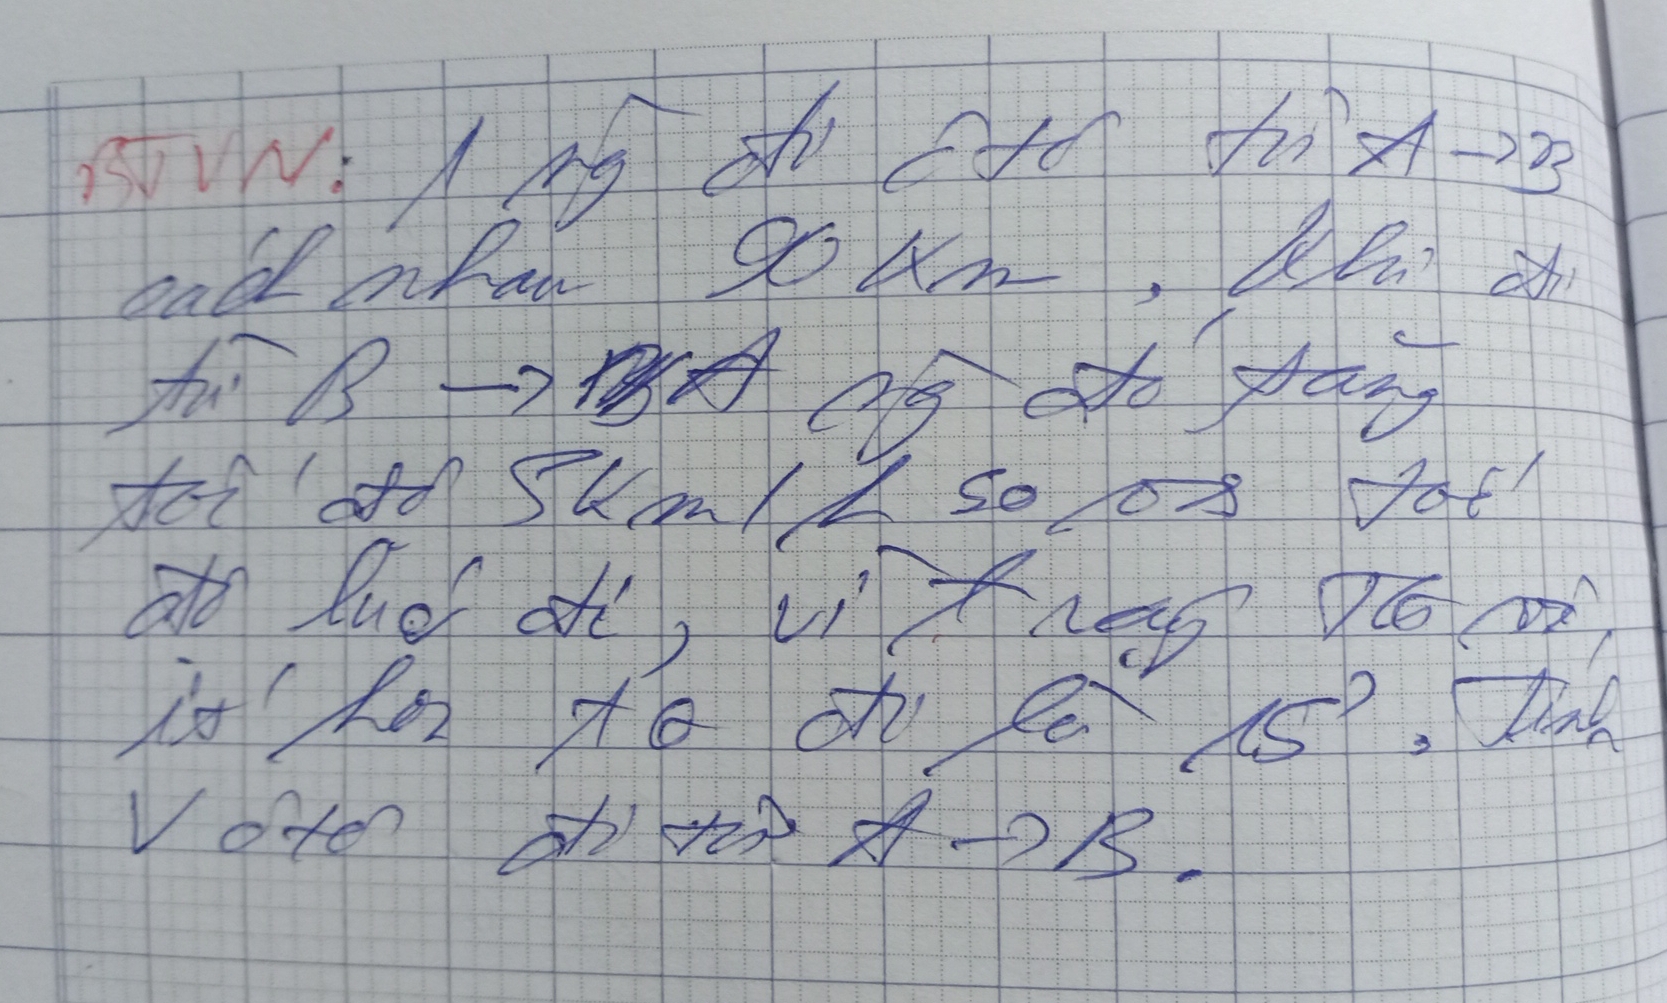 BTVN: 1 ng̀ đi ôtô từ A → B
cách nhau 90 km, khi đi
từ B → A ng̀ đó tăng
tốc độ 5km/h so vs tốc
độ lúc đi, vì vậy TG về
ít hơn TG đi là 15'. Tính
V ôtô đi từ A → B.